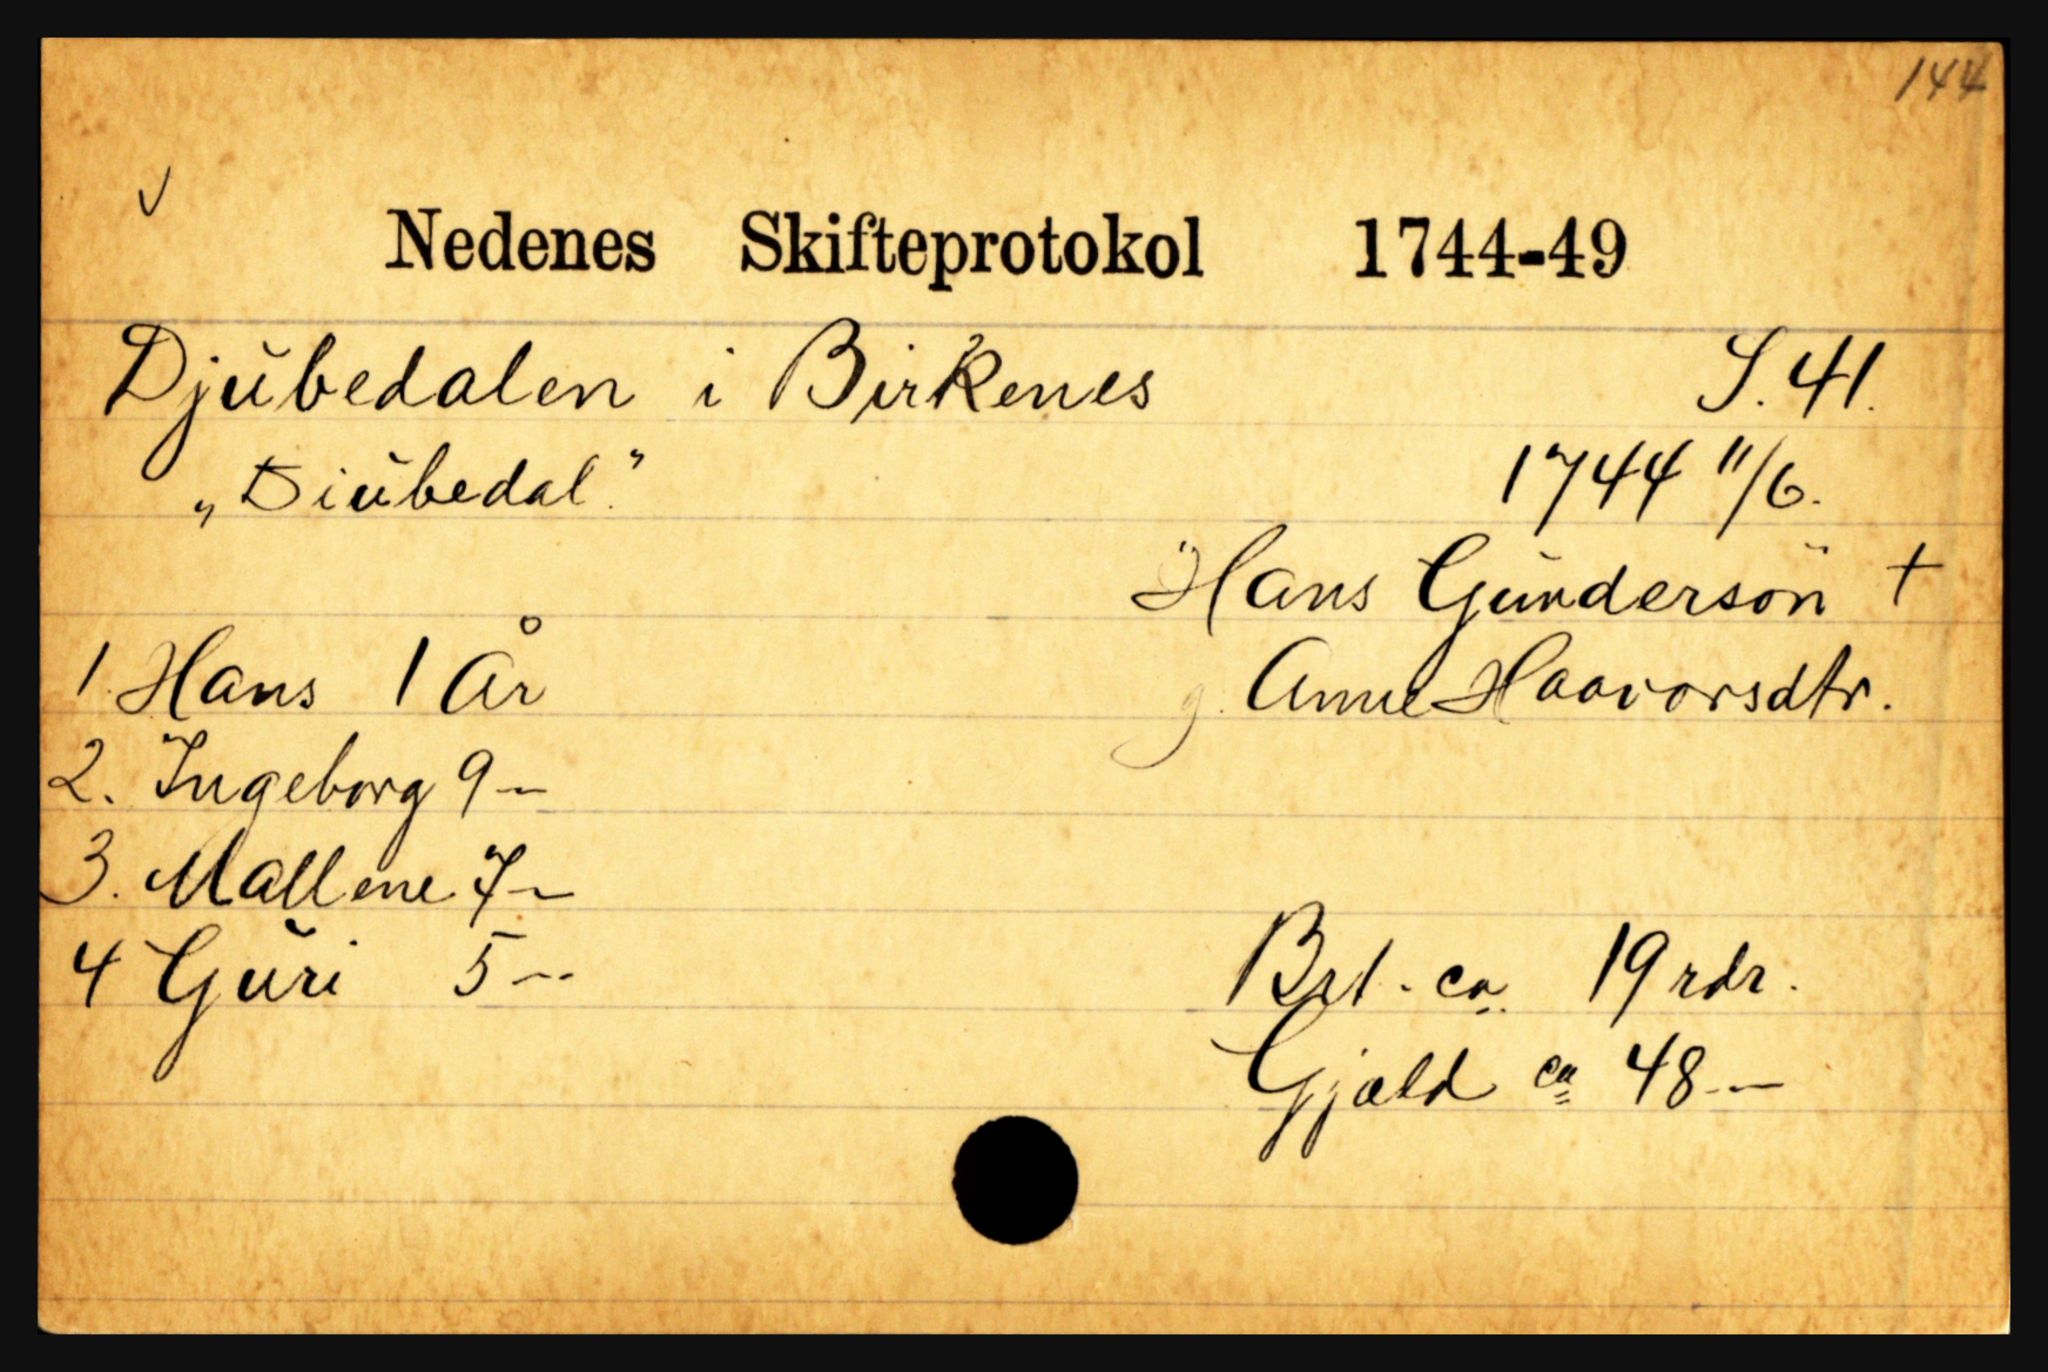 144
Nedenes Skifteprotokol 1744-49
Djubedalen i Birkenes S. 41.
„Diubedal.” 1744 11/6.
Hans Gundersön +
1. Hans 1 År g. Anne Haavorsdtr.
2. Ingeborg 9 -
3. Mallene 7 -
4 Guri 5 - Brt. ca 19 rdr.
Gjæld ca 48 -